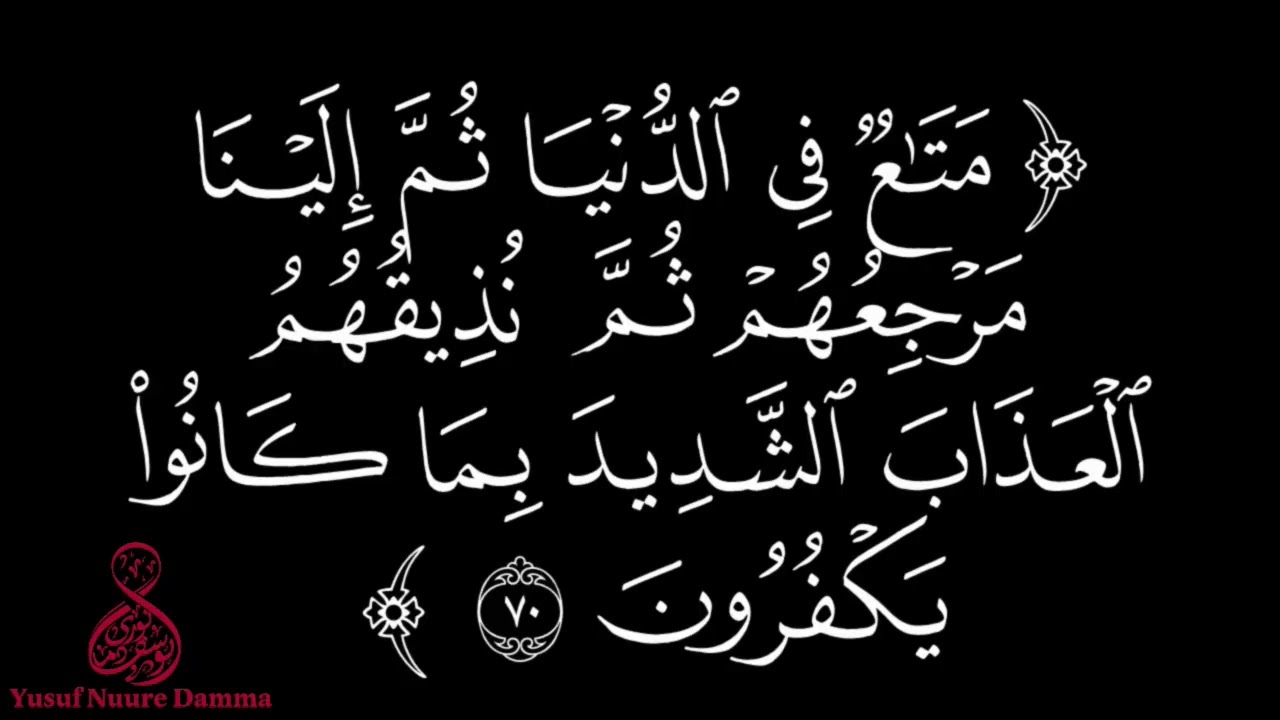 ﴿ مَتَـٰعٌۭ فِى ٱلدُّنْيَا ثُمَّ إِلَيْنَا
مَرْجِعُهُمْ ثُمَّ نُذِيقُهُمُ
ٱلْعَذَابَ ٱلشَّدِيدَ بِمَا كَانُوا۟
يَكْفُرُونَ ٧٠ ﴾
Yusuf Nuure Damma